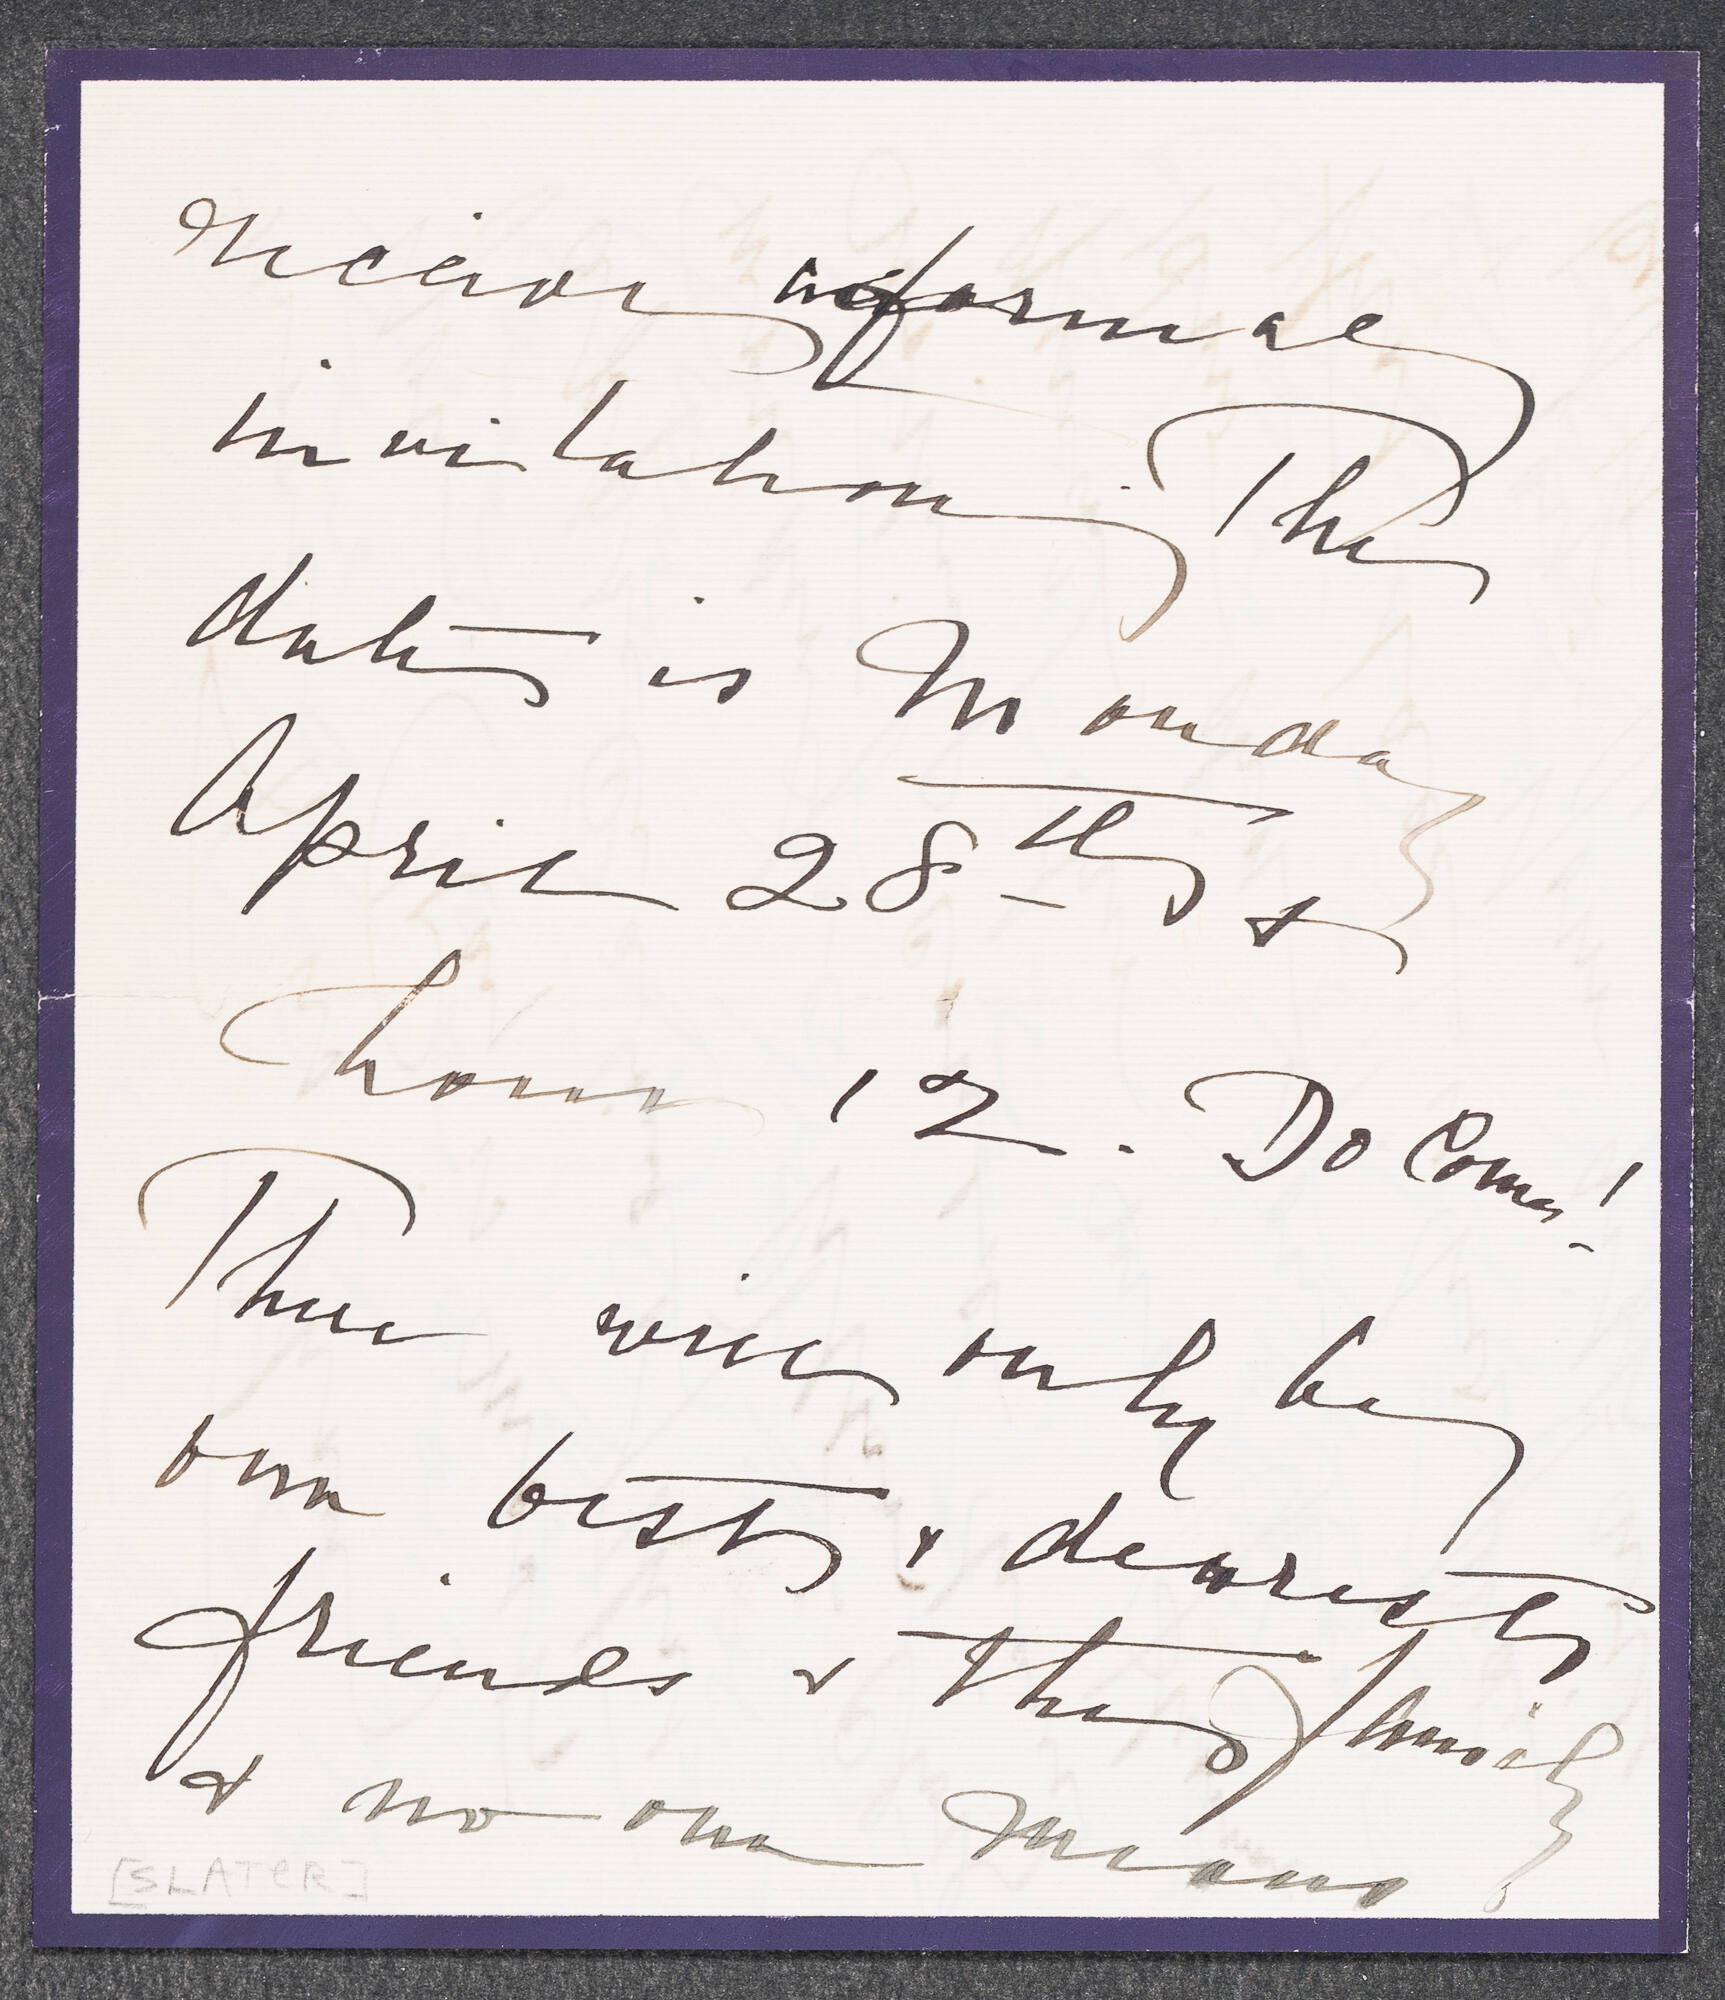 receive a formal
invitation. The
date is Monday
April 28th &
hour 12. Do Come!
There will only be
our best & dearest
friends & the family
& no one means
[SLATER]